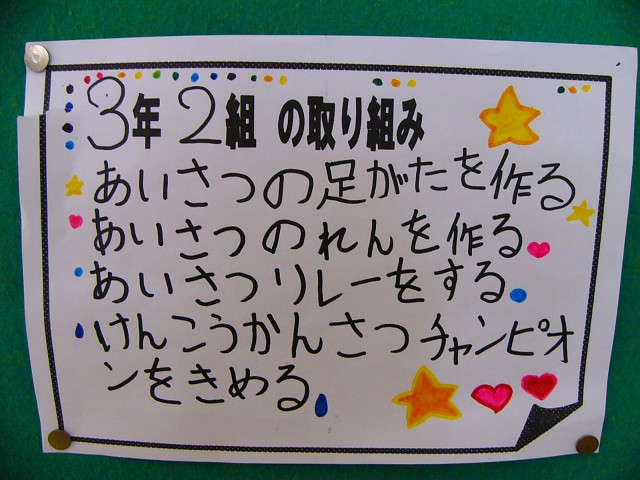 3年2組の取り組み
あいさつの足がたを作る
あいさつのれんを作る
あいさつリレーをする
けんこうかんさつチャンピオ
ンをきめる